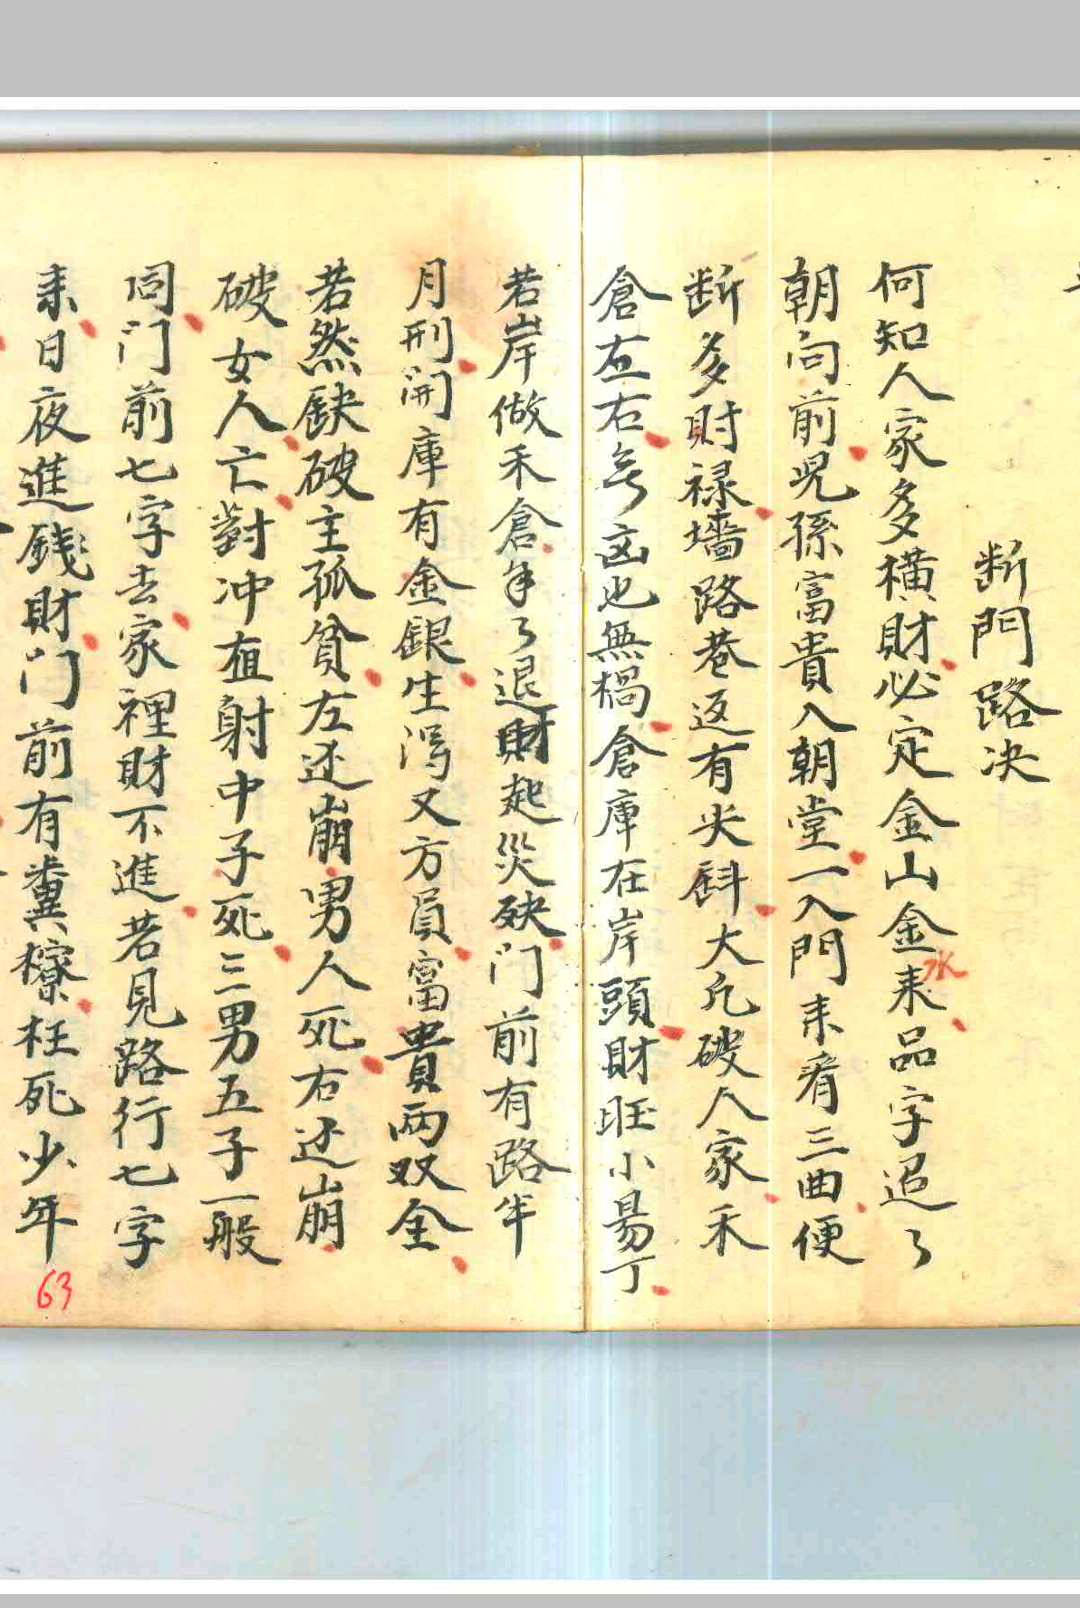 断門路决
何知人家多横財必定金山金来品字迢々
水
朝向前児孫富貴入朝堂一入門来看三曲便
断多財禄墙路巷返有尖斜大凡破人家禾
倉在右
凶也無禍倉庫在岸頭財旺小易丁
若岸做禾倉年了退財起災殃门前有路半
月刑開庫有金銀生
又方員富貴两双全
若然缺破主孤貧左还崩男人死右还崩
破女人亡對冲直射中子死三男五子一般
同门前七字去家裡財不進若見路行七字
来日夜進錢財门前有糞
枉死少年
63